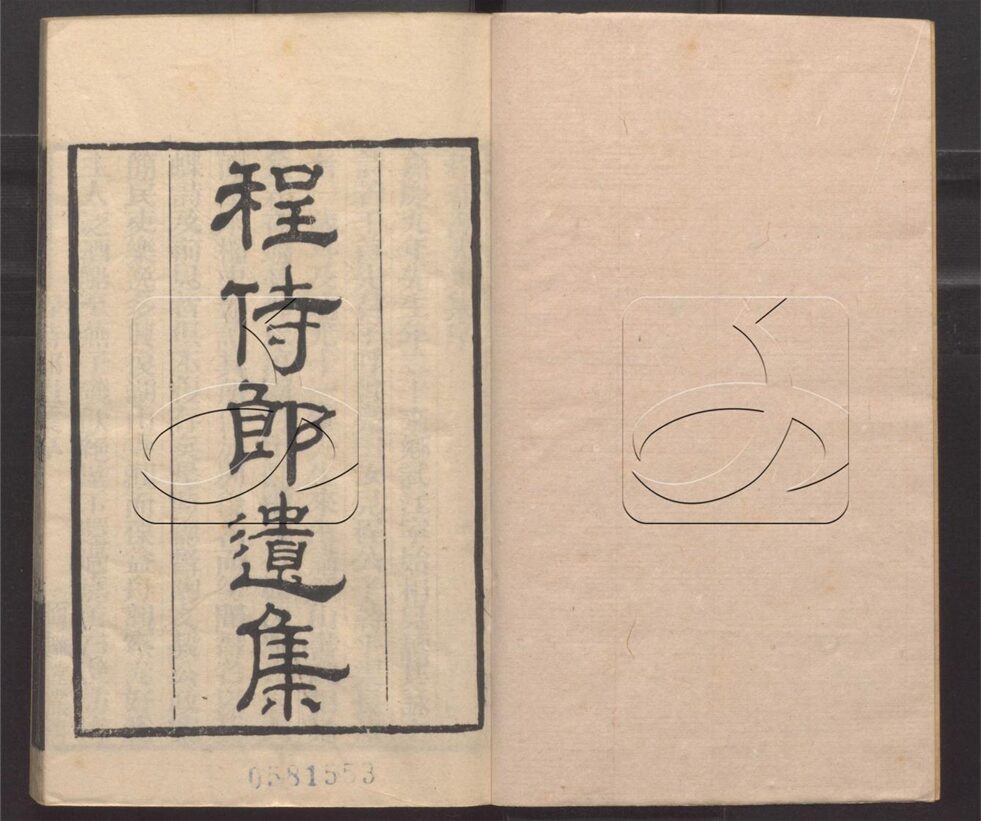 程侍郎遺集
0581553